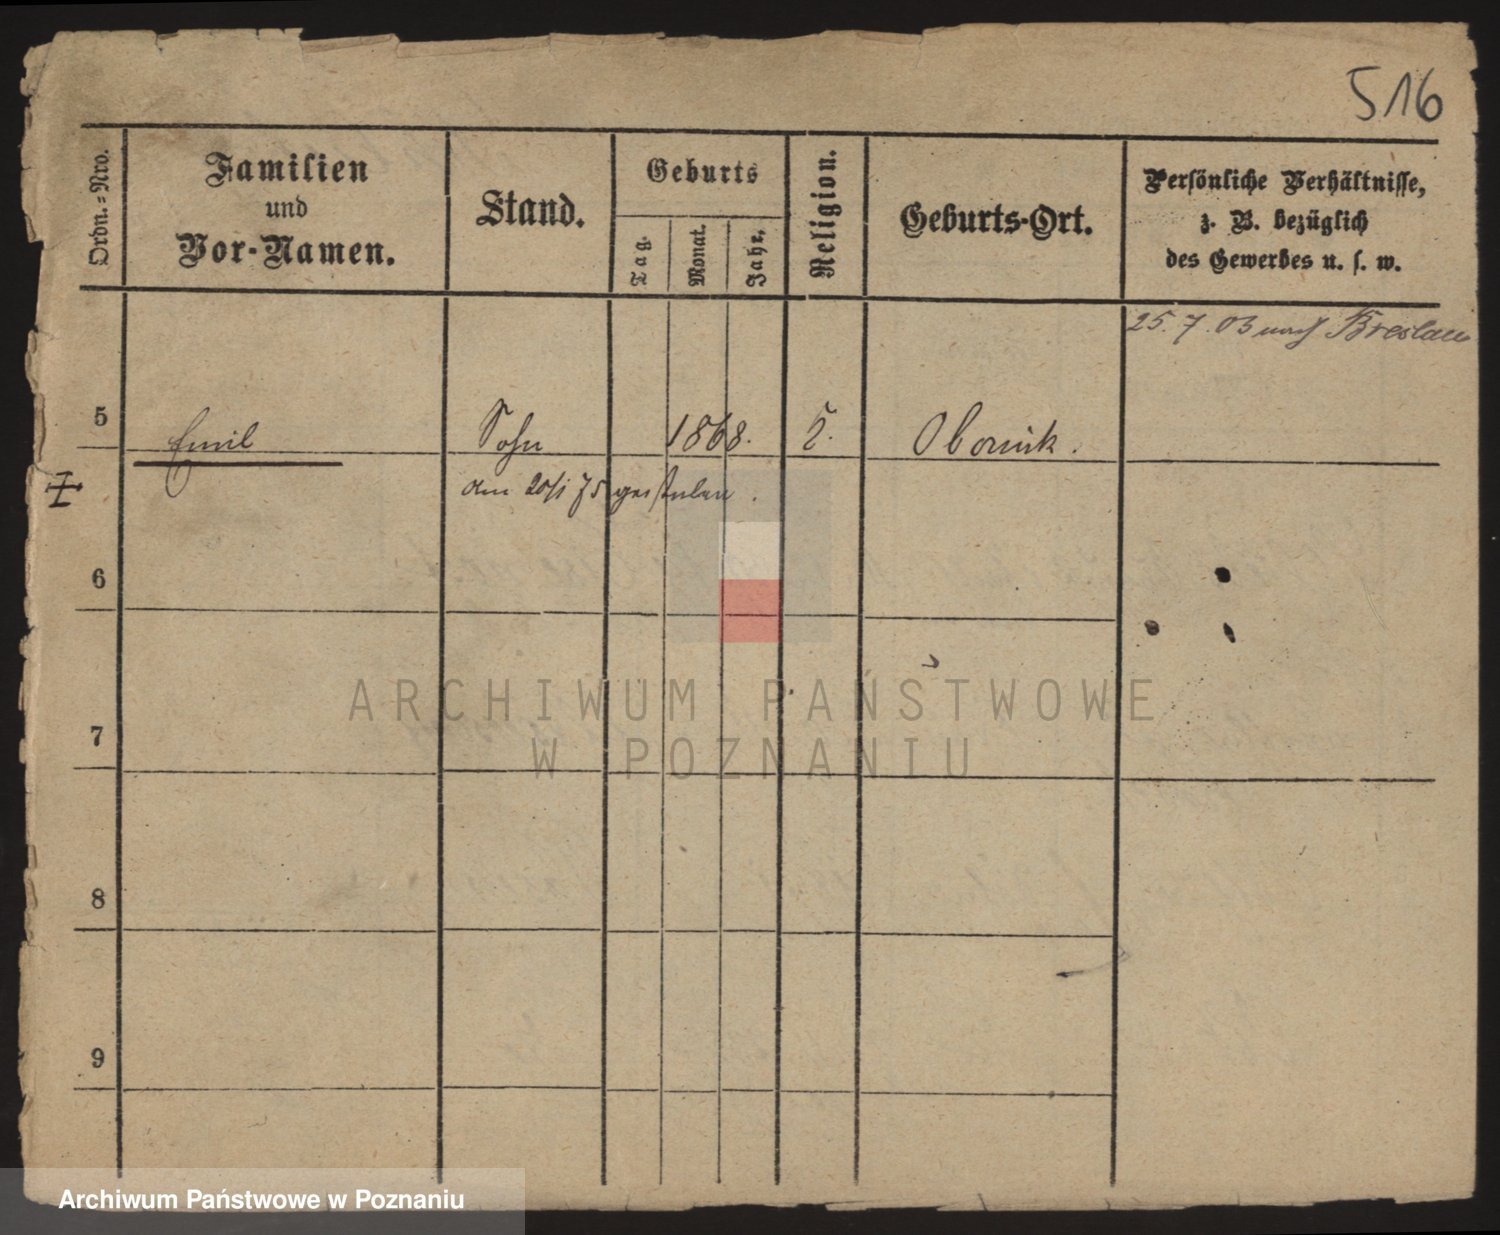 516
Ordn.-Nro.
Familien
und
Vor-Namen.
Stand.
Geburts
Tag.
Monat.
Jahr.
Religion.
Geburts-Ort.
Persönliche Verhältnisse,
z. B. bezüglich
des Gewerbes u. s. w.
25. 7. 03 nach Breslau
5 Emil Sohn 1868. Obornik.
am 20/1 75 gestorben.
6
7
8
9
ARCHIWUM PAŃSTWOWE
W POZNANIU
Archiwum Państwowe w Poznaniu